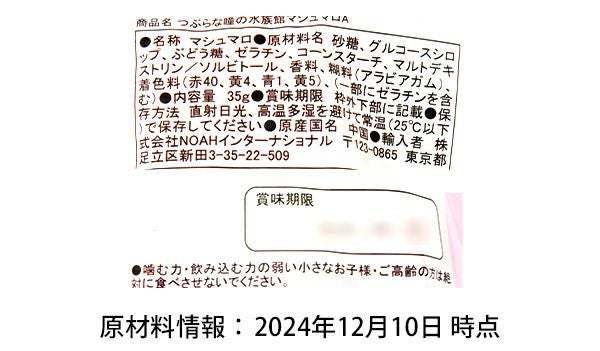 商品名 つぶらな瞳の水族館マシュマロA
●名称 マシュマロ●原材料名 砂糖、グルコースシロ
ップ、ぶどう糖、ゼラチン、コーンスターチ、マルトデキ
ストリン／ソルビトール、香料、糊料(アラビアガム)、
着色料(赤40、黄4、青1、黄5)、(一部にゼラチンを含
む)●内容量 35g●賞味期限 枠外下部に記載●保
存方法 直射日光、高温多湿を避けて常温(25℃以下
)で保存してください●原産国名 中国●輸入者 株
式会社NOAHインターナショナル 〒123-0865 東京都
足立区新田3-35-22-509
賞味期限
●噛む力・飲み込む力の弱い小さなお子様・ご高齢の方は絶
対に食べさせないでください。
原材料情報：2024年12月10日 時点